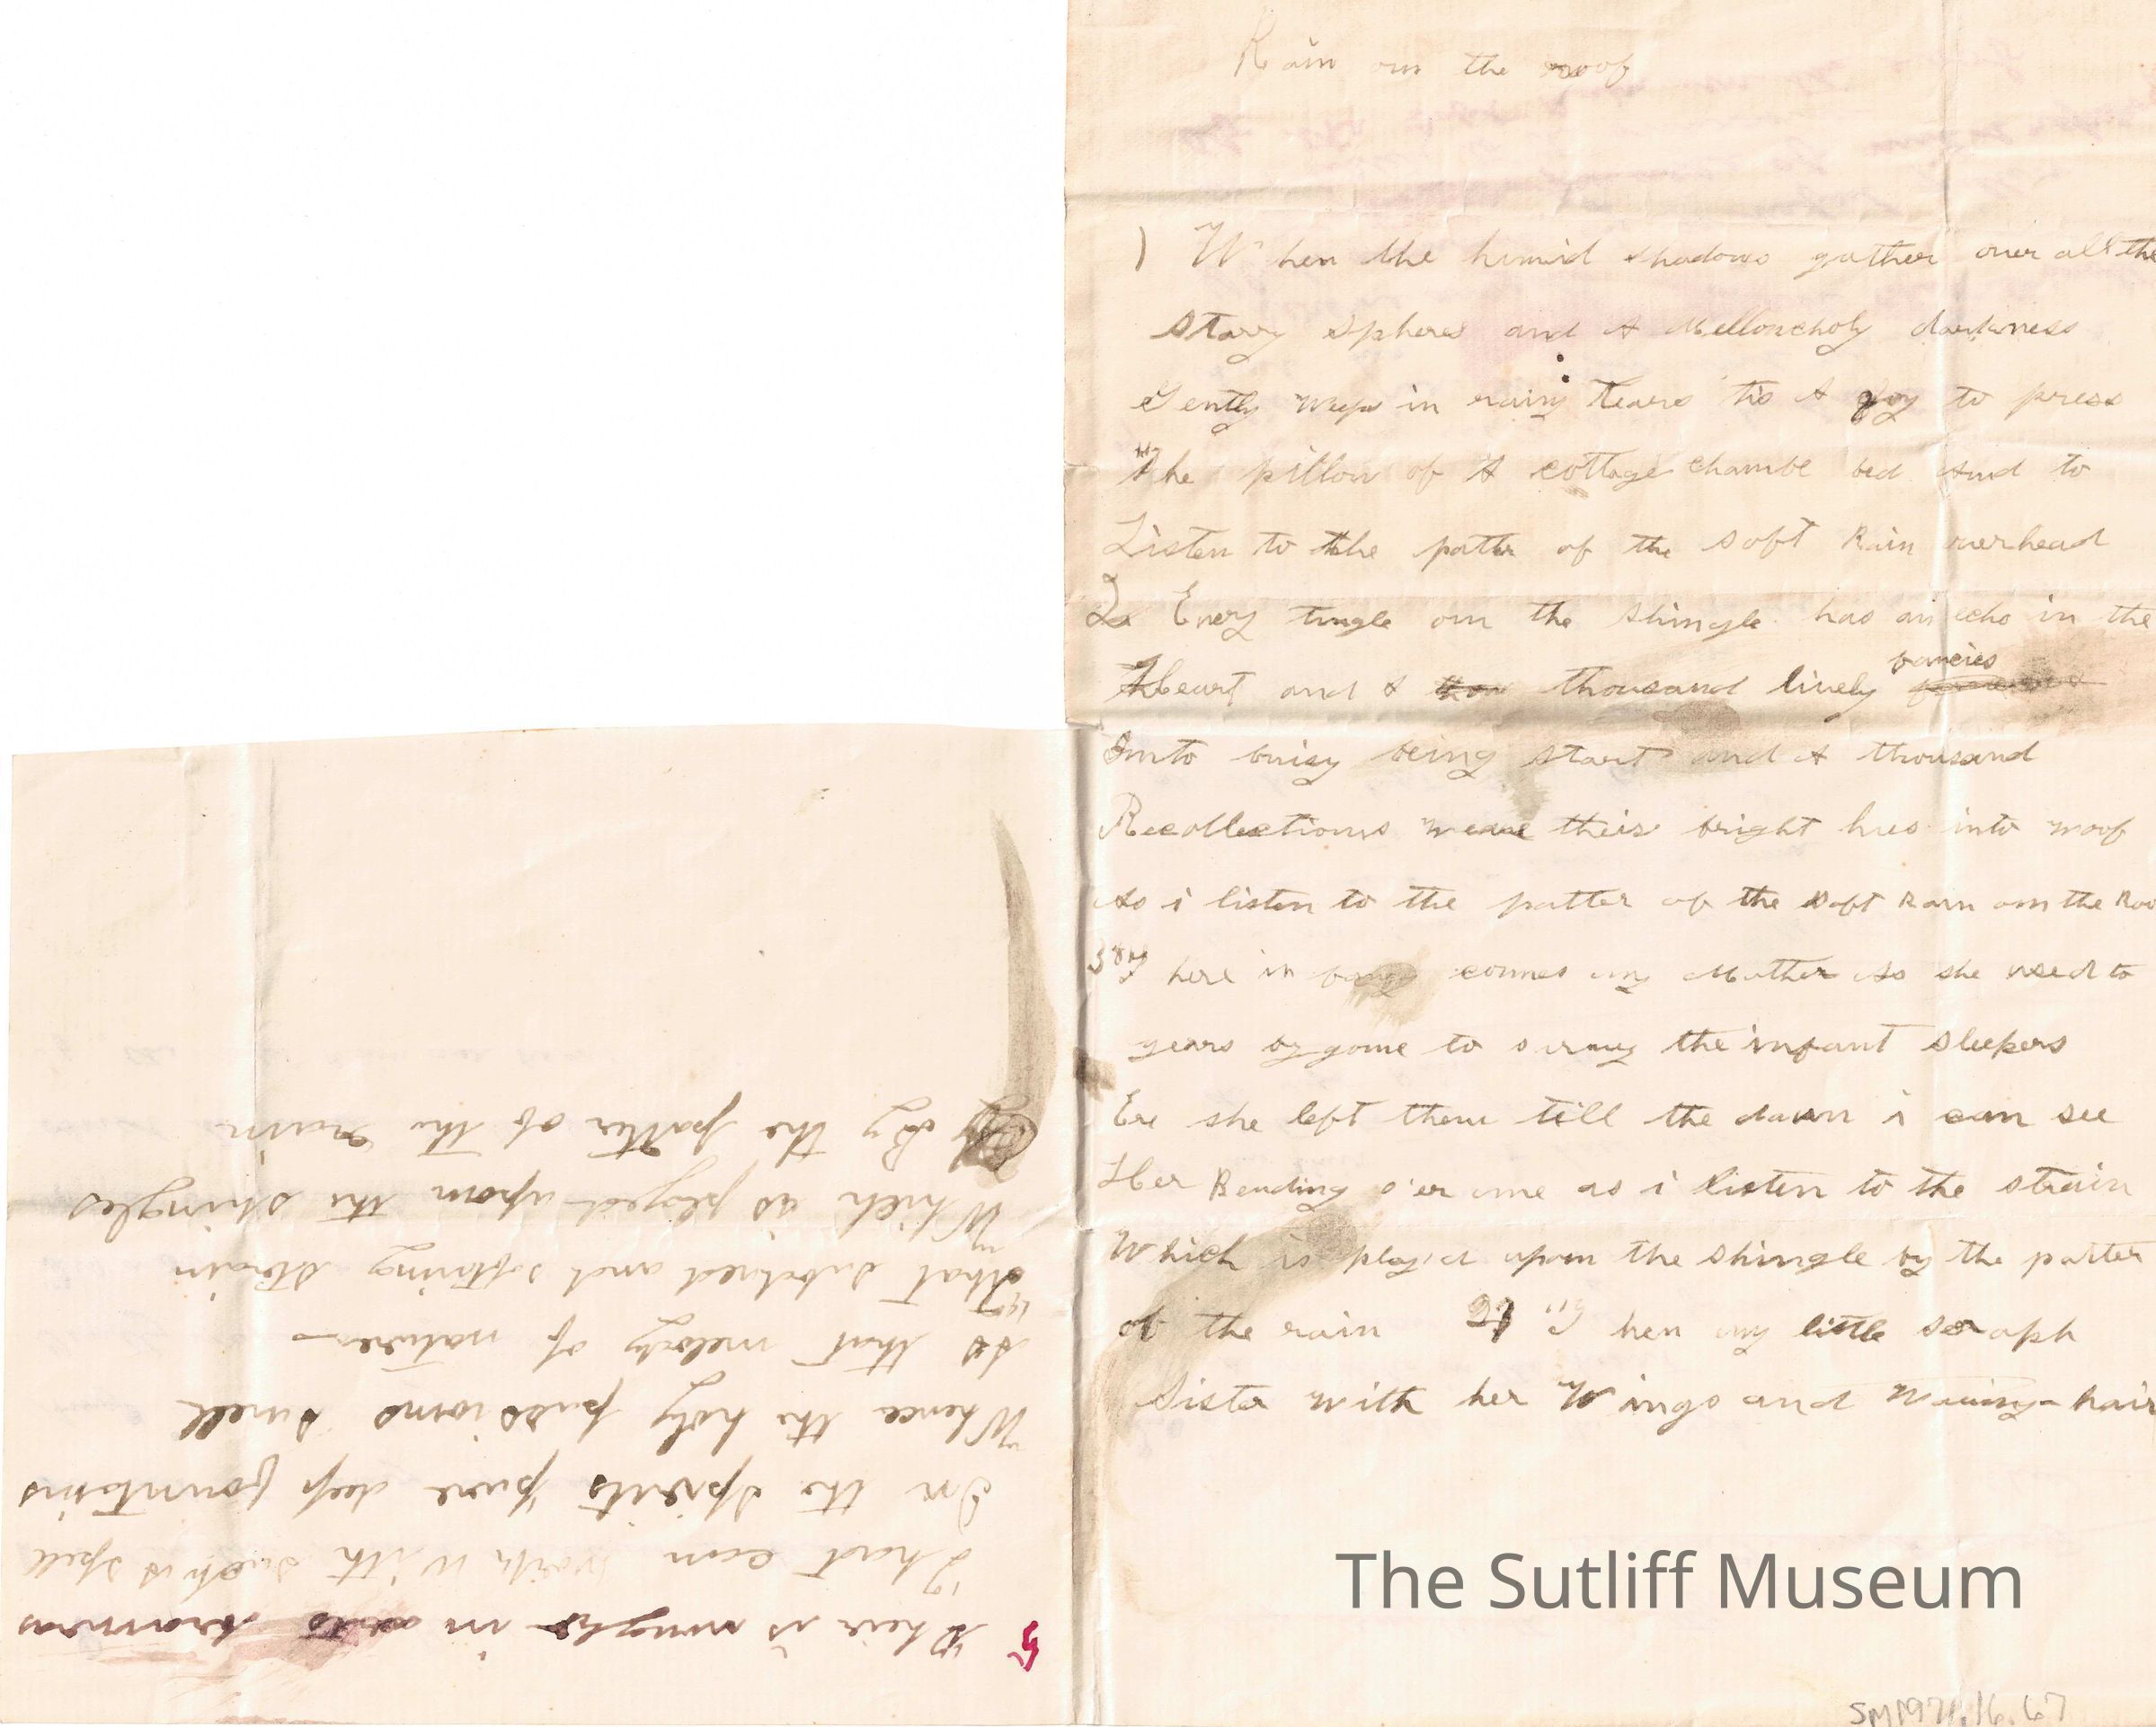 Rain on the roof
1 When the humid shadows gather over all the
starry spheres and A Melloncholy darkness
Gently weeps in rainy tears tis A joy to press
The pillow of A cottage chambe bed And to
Listen to the patter of the soft Rain overhead
2 Every tingle on the shingle has an echo in the
Heart and A thousand lively fancies
Into buisy being start and A thousand
Recollections weave their bright hues into woof
As i listen to the patter of the soft Rain on the Roo
3rd here in fancy comes my Mother As she used to
years bygone to survey the infant sleepers
Ere she left them till the dawn i can see
Her Bending o'er me as i listen to the strain
Which is played upon the shingle by the patter
of the rain Then my little seraph
Sister with her Wings and waving hair
5 Their is naught in arts bravuras
That can work With such a spell
In the spirits pure deep fountains
Whence the holy passions swell
As that melody of nature
That subdued and softning strain
Which is played upon the shingles
By the patter of the rain
The Sutliff Museum
SM1971.16.67